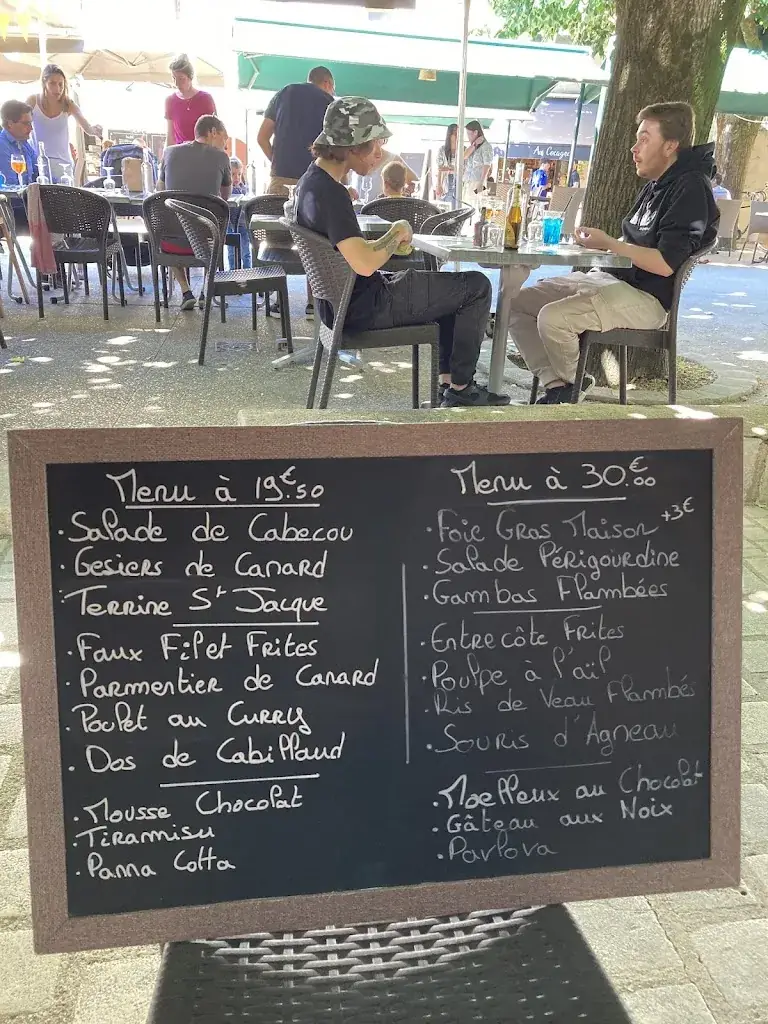 Au Cocagne
Menu à 19€.50
. Salade de Cabecou
. Gesiers de Canard
. Terrine St Jacque
. Faux Filet Frites
. Parmentier de Canard
. Poulet au Curry
. Dos de Cabillaud
. Mousse Chocolat
. Tiramisu
. Panna Cotta
Menu à 30.€00
. Foie Gras Maison +3€
. Salade Périgourdine
. Gambas Flambées
. Entrecôte Frites
. Poulpe à l'aïl
. Ris de Veau Flambés
. Souris d'Agneau
. Moelleux au Chocolat
. Gâteau aux Noix
. Pavlova